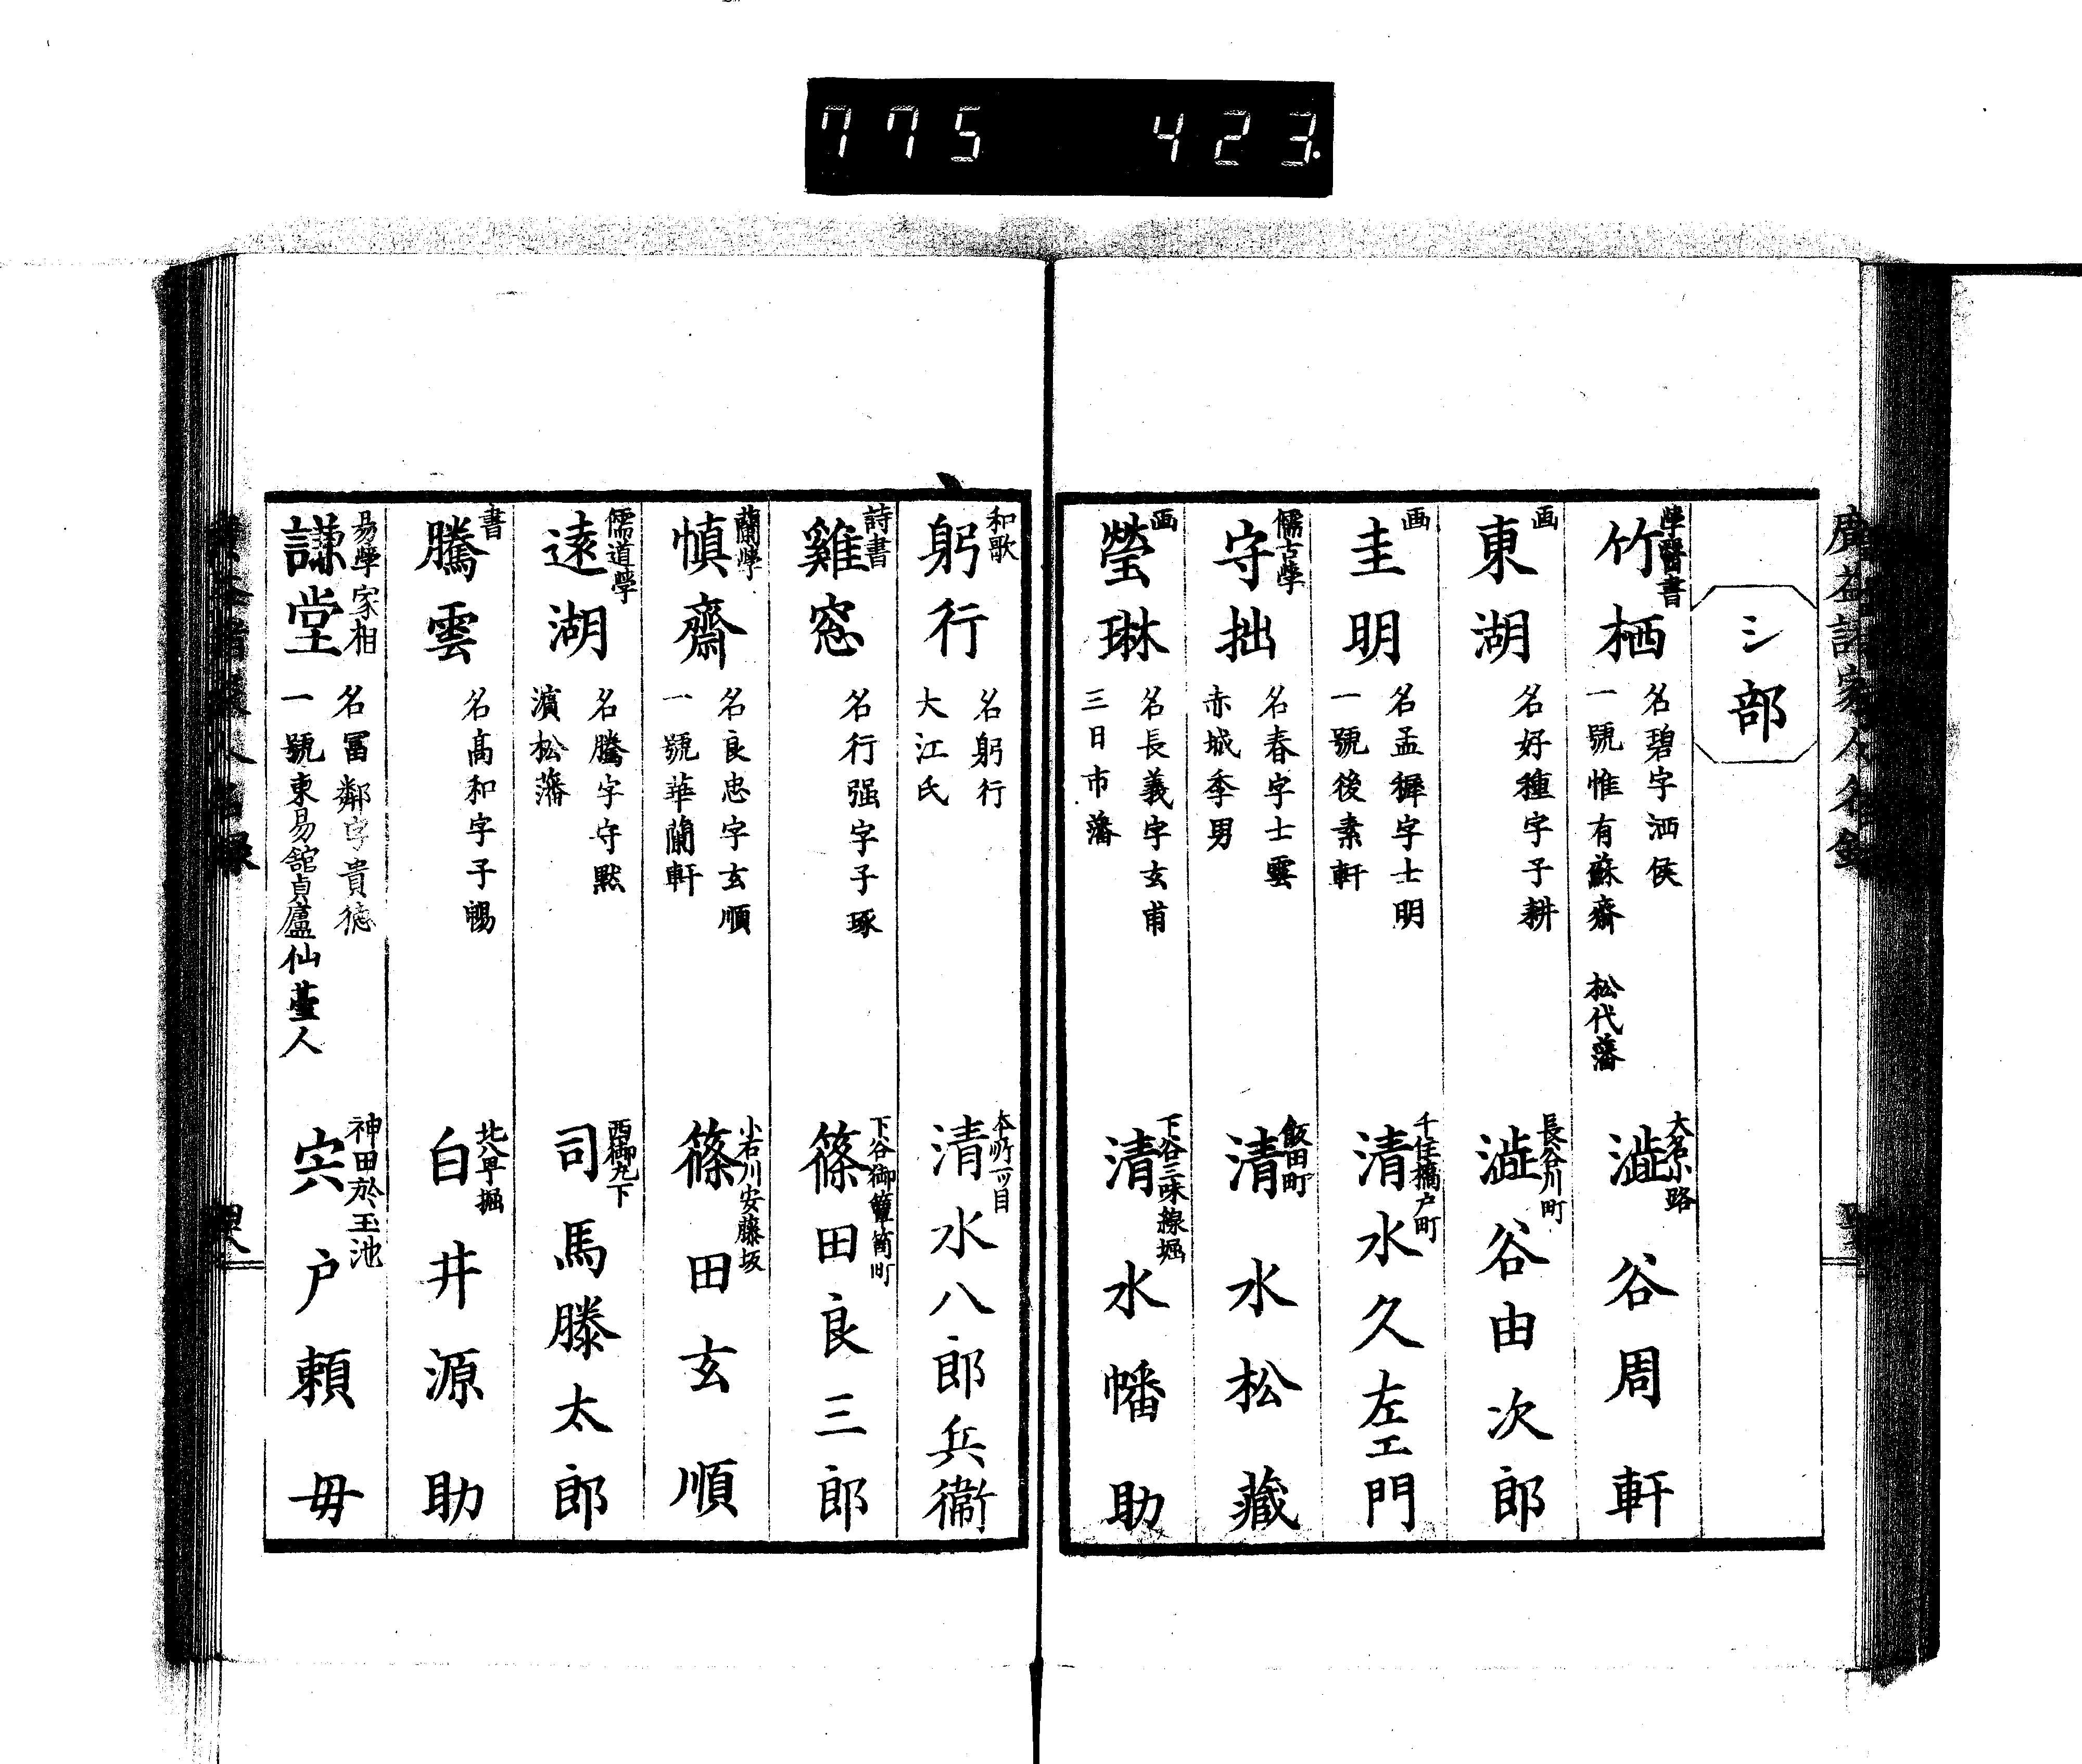 775 423.
廣益諸家人名録
シ部
學醫書
竹栖
名碧字洒侯
一號惟有蘇齋 松代藩
澁谷周軒
画
東湖
名好種字子耕
長谷川町
澁谷由次郎
画
圭明
名孟穉字士明
一號後素軒
千住橋戸町
清水久左エ門
儒古學
守拙
名春字士雲
赤城季男
飯田町
清水松藏
画
瑩琳
名長義字玄甫
三日市藩
下谷三味線堀
清水幡助
和歌
躬行
名躬行
大江氏
本所一ツ目
清水八郎兵衞
詩書
雞窓
名行强字子琢
下谷御簞笥町
篠田良三郎
蘭學
愼齋
名良忠字玄順
一號華蘭軒
小石川安藤坂
篠田玄順
儒道學
遠湖
名騰字守默
濵松藩
西御丸下
司馬滕太郎
書
騰雲
名高和字子暢
北八丁堀
白井源助
易學家相
謙堂
名冨鄰字貴德
一號東易舘貞廬仙臺人
神田於玉池
宍戸頼母